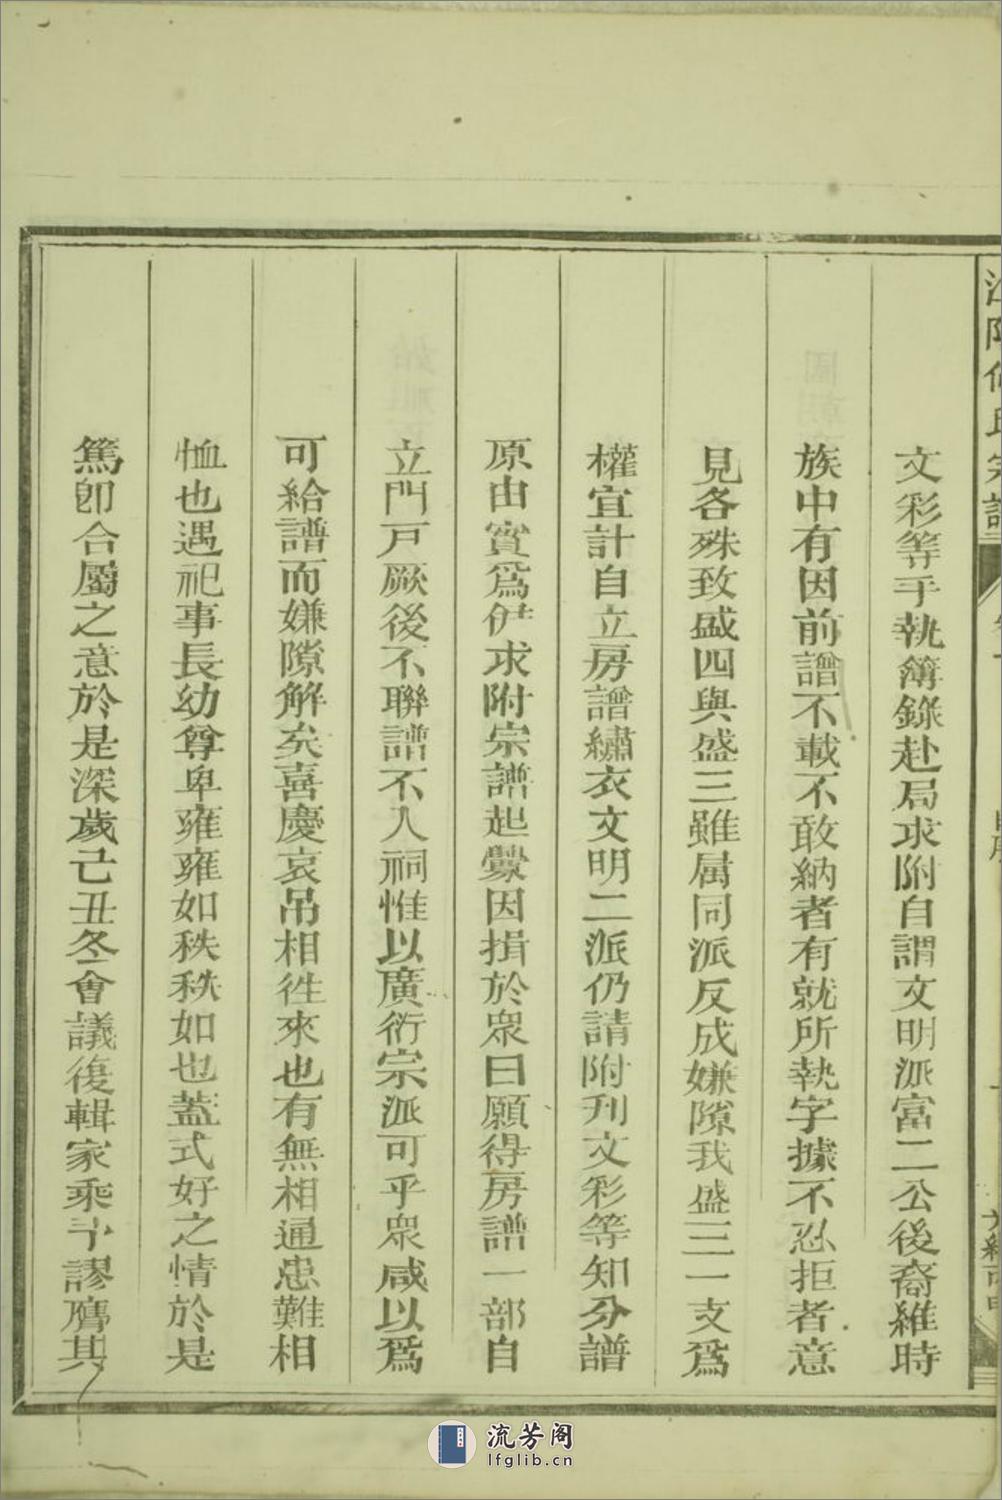 文彩等手執簿錄赴局求附自謂文明派富二公後裔維時
族中有因前譜不載不敢納者有就所執字據不忍拒者意
見各殊致盛四與盛三雖属同派反成嫌隙我盛三一支爲
權宜計自立房譜繡衣文明二派仍請附刊文彩等知分譜
原由實爲伊求附宗譜起釁因揖於眾曰願得房譜一部自
立門戸厥後不聯譜不入祠惟以廣衍宗派可乎眾咸以爲
可給譜而嫌隙解矣喜慶哀吊相徃來也有無相通患難相
恤也遇祀事長幼尊卑雍雍如秩秩如也蓋式好之情於是
篤卽合屬之意於是深歲己丑冬會議復輯家乘予謬膺其
流芳阁
lfglib.cn